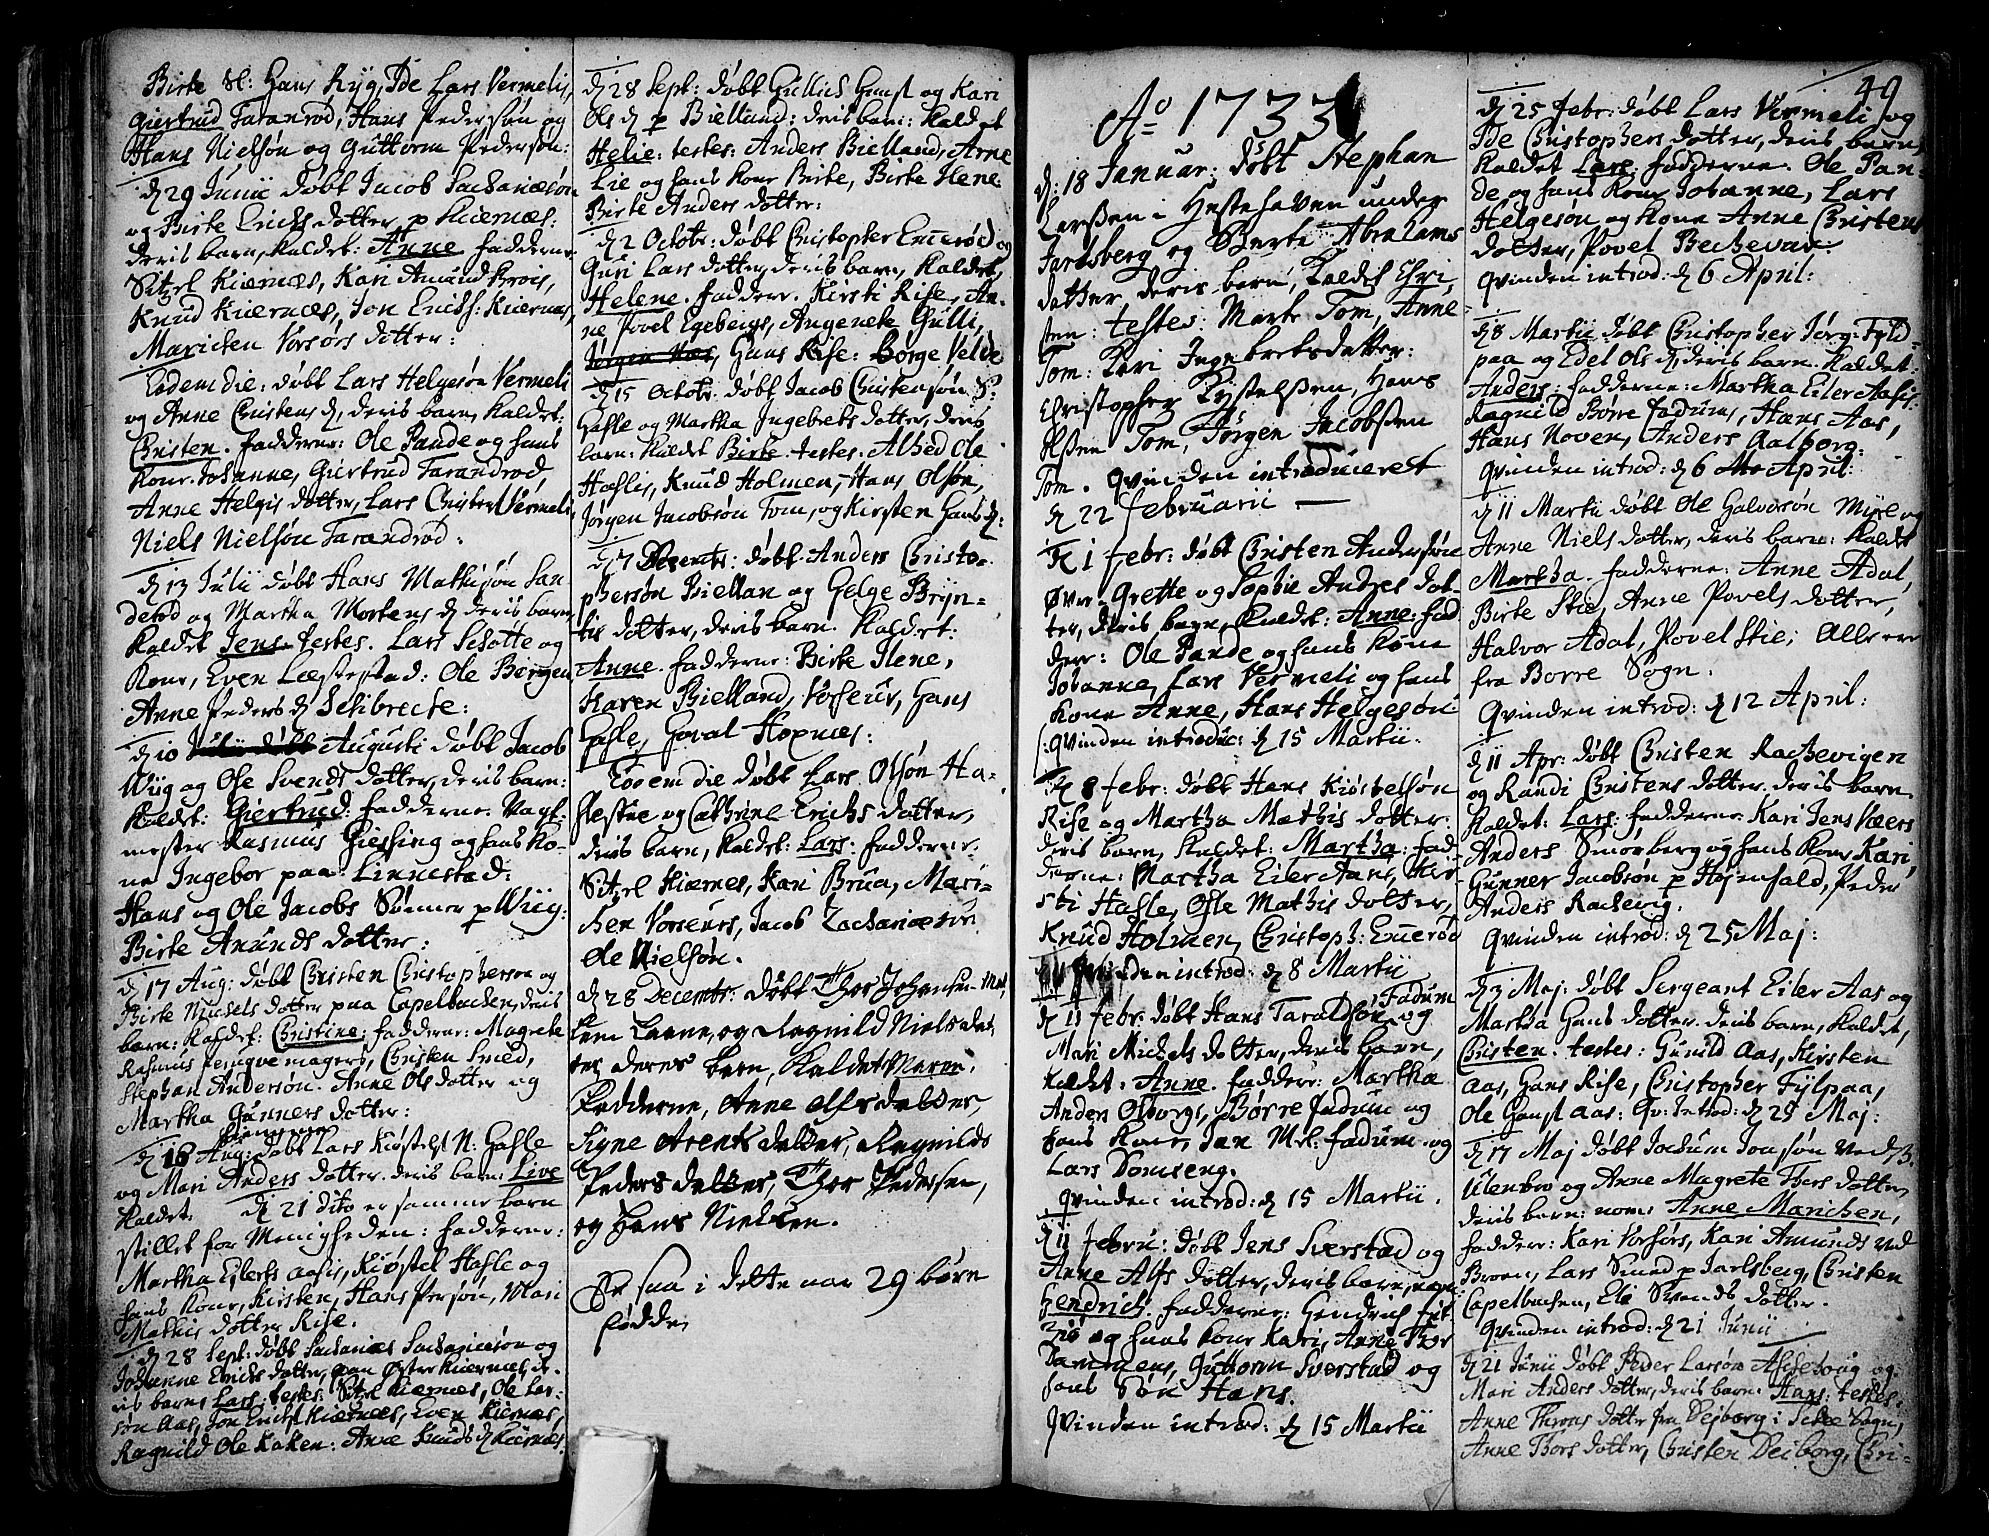 Birte Sl: Hans Ryg, Ide Lars Vermelis,
Giertrud Taranrød, Hans Pedersøn og
Hans Nielsøn og Guttorm Pedersøn:
d 29 Junii døbt Jacob Sachariæsøn
og Birte Erichs dotter p Kiernæs:
deris barn, kaldet: Anne fadderne
Kiernæs, Kari Amund brois,
Knud Kiernæs, Jon Erichs: Kiernæs,
Marichen Vorsørs dotter:
Eodem die: døbt Lars Helgesøn Vermeli
og Anne Christens d, deris barn, kaldet:
Christen. fadderne: Ole Pande og hans
Kone Johanne, Giertrud Tarandrød,
Anne Helgis dotter, Lars Christen Vermeli,
Niels Nielsøn Tarandrød.
d 13 Julii døbt Hans Mathisøn San
derød og Martha Mortens d deris barn
kaldet Jens. testes. Lars og
Kone, Even Ole Bergen
Anne Peders d Selibrecte:
d 10 Julii døbt Augusti døbt Jacob
Wiig og Ose Svends dotter, deris barn:
kaldet: Giertrud: fadderne: Vagt-
mester Rasmus Giessing og hans Ko-
ne Ingebor paa Linnestad:
Hans og Ole Jacobs Sønner p Wiig:
Birte Anunds dotter:
d 17 Aug: døbt Christen Christophersøn og
Birte Nields dotter paa Capelbachen, deris
barn: kaldet: Christine: fadderne: Magrete
Rasmus magers, Christen Smed,
Stephan Andersøn. Anne Ols dotter og
Martha Gunners dotter:
d 16 Aug: døbt Lars Kiøstels N: Hasle
og Mari Anders dotter. deris barn: Live
kaldet: d 21 dito er samme barn
stillet for Menigheden: fadderne:
Martha Eilerts aasis, Kiøstel Hasle og
hans Kone, Kirsten, Hans Persøn, Mari
Mathis dotter Rise.
d 28 Sept: døbt Sachariæs Sachariæsøn og
Johanne Erichs dotter, paa Øster Kiernæs, de-
ris barn: Lars: testes: Kiernæs, Ole Lar-
søn Aas, Jon Erichs Kiernæs, Even Kiernæs,
Ragnild Ole Kaken: Anne Knuds d Kiernæs.
d 28 Sept: døbt Gullich Hanss og Kari
Ols d p Bielland: deris barn: kaldet
Helie: testes: Anders Bielland, Arne
Lie og hans Kone Birte, Birte Ilene
Birte Anders dotter:
d 2 Octobr: døbt Christopher Emerød og
Guri Lars dotter, deris barn, kaldet,
Helene. fadderne. Kirsti Rise, An-
ne Povel Egebergs, Angenete Gulli,
Jørgen Næs, Hans Rise: Børge Velde
d 15 Octobr. døbt Jacob Christensøn S:
Hasle og Martha Ingebrets dotter, deris
barn: kaldet Birte. testes. Alhed Ole
Haslis, Knud Holmen, Hans Olsøn,
Jørgen Jacobsøn Tom, og Kirsten Hans d:
d 7 Decembr: døbt Anders Christo-
phersøn Biellan og Helge Bryn-
tis dotter, deris barn. kaldet:
Anne. fadderne: Birte Ilene,
Karen Bielland, Hans
Hasle, Hopnæs:
Eodem die døbt Lars Olsøn Ha-
flestue og Cathrine Erichs dotter,
deris barn, kaldet: Lars: fadderne.
Kiærnes, Kari Brua, Mari-
chen Vorseurs, Jacob Zachariæsøn
Ole Nielsøn.
d 28 Decembr: døbt Thor Johansen
og Ragnild Niels dat-
ter deres barn, Kaldet Maren.
Fadderne, Anne Olfsdatter,
Signe Arents datter, Ragnilds
Peders datter, Thor Pedersen,
og Hans Nielssen.
Er saa i dette aar 29 børn
fødde
49
Ao 1733
d: 18 Januar: døbt Stephan
Larssen i Hestehaven under
Jarlsberg og Berte Abrahams
datter, deris barn, kaldet Chri
sten: testes: Marte Tom, Anne
Tom: Kari Ingebretsdatter:
Christopher Kystelssen, Hans
Tom, Jørgen Jacobssen
Tom. Qvinden introduceret
d 22 februarii
d 1 febr: døbt Christen Andersøn
Øvre-Grette og Sophie Andres dot-
ter, deris barn, kaldet: Anne: fad
dere: Ole Pande og hans Kone
Johanne, Lars Vermeli og hans
Kone Anne, Hans Helgesøn
Qvinden introduc: d 15 Martii.
d 8 febr: døbt Hans Kiøstelsøn
Rise og Martha Mathis dotter.
deris barn, kaldet: Martha: fad
derne: Martha Eiler Aas, Kir-
sti Hasle, Ose Mathis dotter,
Knud Holmen, Christoph: Emerød
Qvinden introd: d 8 Martii
d 11 febr: døbt Hans Taraldsøn Fadum og
Mari Michels dotter, deris barn,
kaldet: Anne. fadder: Martha
Anders Olborgs, Børre Fadum og
hans Kone, Jan fadum. og
Lars Domseng.
Qvinden introd: d 15 Martii.
d 11 febru: døbt Jens Sverstad og
Anne Alfs dotter, deris barn,
Hendrich. fadderne:
og hans Kone Kari, Anne Thor
Guttorm Sverstad og
hans Søn Hans.
Qvinden introd: d 15 Martii
d 25 febr: døbt Lars Vermeli og
Ide Christophers dotter, deris barn,
kaldet Lars: fadderne. Ole Pan-
de og hans Kone Johanne, Lars
Helgesøn og Kone Anne Christens
dotter, Povel Bechevar.
Qvinden introd: d 6 April:
d 8 Martii døbt Christopher Jørg: Fyld-
paa og Edel Ols d, deris barn. kaldet:
Anders: fadderne: Martha Eiler Aasis.
Ragnild Børre fadums, Hans Aas,
Hans Noven, Anders Aalborg.
Qvinden introd: d 6 April:
d 11 Martii døbt Ole Halvorsøn Myre og
Anne Niels dotter, deris barn: kaldet
Martha. fadderne: Anne Adal,
Birte Stie, Anne Povels dotter,
Halvor Adal, Povel Stie; Alle ere
fra Borre Sogn.
Qvinden introd: d 12 April:
d 11 Apr: døbt Christen Rachevigen
og Randi Christens dotter. deris barn.
kaldet: Lars: fadderne: Kari Jens Væers
Anders Smørberg og hans Kone Kari,
Gunner Jacobsøn p Høienhald, Peder
Anders Rachevig.
Qvinden introd: d 25 Maj:
d 3 Maj: døbt Sergeant Eiler Aas og
Martha Hans dotter. deris barn, kaldet,
Christen. testes: Gunild Aas, Kirsten
Aas, Hans Rise, Christopher Fylpaa,
Ole Hansø Aas: Qv: Introd: d 25 Maj:
d 17 Maj døbt Jochum Jonsøn ved
Ulenbro og Anne Magrete Thors dotter,
deris barn: nom: Anne Marichen,
fadder: Kari Vorsørs, Kari Amunds ved
Broen, Lars Smed p Jarlsberg, Christen
Capelbachen, Ele Svends dotter.
Qvinden introd: d 21 Junii
d 21 Junii døbt Peder Larsøn og
Mari Anders dotter, deris barn: Hans: testes:
Anne Throns dotter fra Deiborg: Sogn,
Anne Thors dotter, Christen Deiborg, Chri-